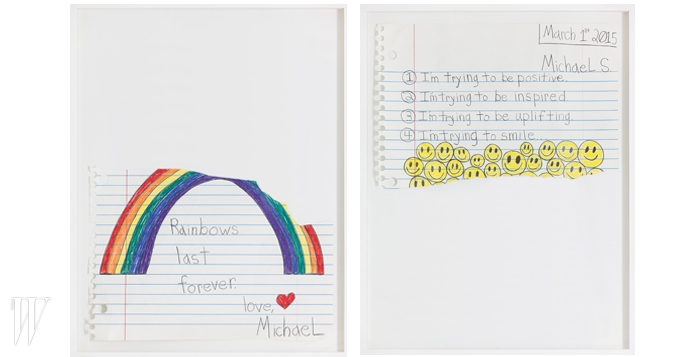 Rainbows
last
forever.
love,
MichaeL
W
March 1st 2015
MichaeL S.
1 I'm trying to be positive.
2 I'm trying to be inspired.
3 I'm trying to be uplifting.
4 I'm trying to smile...